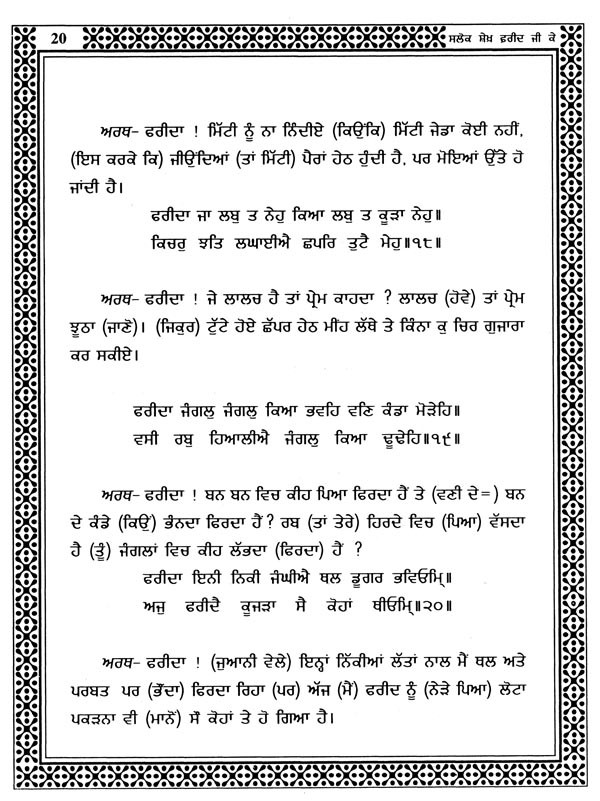 20
ਸਲੋਕ ਸ਼ੇਖ਼ ਫ਼ਰੀਦ ਜੀ ਕੇ
ਅਰਥ- ਫਰੀਦਾ ! ਮਿੱਟੀ ਨੂੰ ਨਾ ਨਿੰਦੀਏ (ਕਿਉਂਕਿ) ਮਿੱਟੀ ਜੇਡਾ ਕੋਈ ਨਹੀਂ,
(ਇਸ ਕਰਕੇ ਕਿ) ਜੀਉਂਦਿਆਂ (ਤਾਂ ਮਿੱਟੀ) ਪੈਰਾਂ ਹੇਠ ਹੁੰਦੀ ਹੈ, ਪਰ ਮੋਇਆਂ ਉੱਤੇ ਹੋ
ਜਾਂਦੀ ਹੈ।
ਫਰੀਦਾ ਜਾ ਲਬੁ ਤ ਨੇਹੁ ਕਿਆ ਲਬੁ ਤ ਕੂੜਾ ਨੇਹੁ॥
ਕਿਚਰੁ ਝਤਿ ਲਘਾਈਐ ਛਪਰਿ ਤੁਟੈ ਮੇਹੁ॥੧੮॥
ਅਰਥ- ਫਰੀਦਾ ! ਜੇ ਲਾਲਚ ਹੈ ਤਾਂ ਪ੍ਰੇਮ ਕਾਹਦਾ ? ਲਾਲਚ (ਹੋਵੇ) ਤਾਂ ਪ੍ਰੇਮ
ਝੂਠਾ (ਜਾਣੋ)। (ਜਿਕੁਰ) ਟੁੱਟੇ ਹੋਏ ਛੱਪਰ ਹੇਠ ਮੀਂਹ ਲੱਥੇ ਤੇ ਕਿੰਨਾ ਕੁ ਚਿਰ ਗੁਜਾਰਾ
ਕਰ ਸਕੀਏ।
ਫਰੀਦਾ ਜੰਗਲੁ ਜੰਗਲੁ ਕਿਆ ਭਵਹਿ ਵਣਿ ਕੰਡਾ ਮੋੜੇਹਿ॥
ਵਸੀ ਰਬੁ ਹਿਆਲੀਐ ਜੰਗਲੁ ਕਿਆ ਢੂਢੇਹਿ॥੧੯॥
ਅਰਥ- ਫਰੀਦਾ ! ਬਨ ਬਨ ਵਿਚ ਕੀਹ ਪਿਆ ਫਿਰਦਾ ਹੈਂ ਤੇ (ਵਣੀ ਦੇ=) ਬਨ
ਦੇ ਕੰਡੇ (ਕਿਉਂ) ਭੰਨਦਾ ਫਿਰਦਾ ਹੈਂ ? ਰਬ (ਤਾਂ ਤੇਰੇ) ਹਿਰਦੇ ਵਿਚ (ਪਿਆ) ਵੱਸਦਾ
ਹੈ (ਤੂੰ) ਜੰਗਲਾਂ ਵਿਚ ਕੀਹ ਲੱਭਦਾ (ਫਿਰਦਾ) ਹੈਂ ?
ਫਰੀਦਾ ਇਨੀ ਨਿਕੀ ਜੰਘੀਐ ਥਲ ਡੂਗਰ ਭਵਿਓਮ੍ਹਿ॥
ਅਜੁ ਫਰੀਦੈ ਕੂਜੜਾ ਸੈ ਕੋਹਾਂ ਥੀਓਮ੍ਹਿ॥੨੦॥
ਅਰਥ- ਫਰੀਦਾ ! (ਜੁਆਨੀ ਵੇਲੇ) ਇਨ੍ਹਾਂ ਨਿੱਕੀਆਂ ਲੱਤਾਂ ਨਾਲ ਮੈਂ ਥਲ ਅਤੇ
ਪਰਬਤ ਪਰ (ਭੌਂਦਾ) ਫਿਰਦਾ ਰਿਹਾ (ਪਰ) ਅੱਜ (ਮੈਂ) ਫਰੀਦ ਨੂੰ (ਨੇੜੇ ਪਿਆ) ਲੋਟਾ
ਪਕੜਨਾ ਵੀ (ਮਾਨੋਂ) ਸੌ ਕੋਹਾਂ ਤੇ ਹੋ ਗਿਆ ਹੈ।